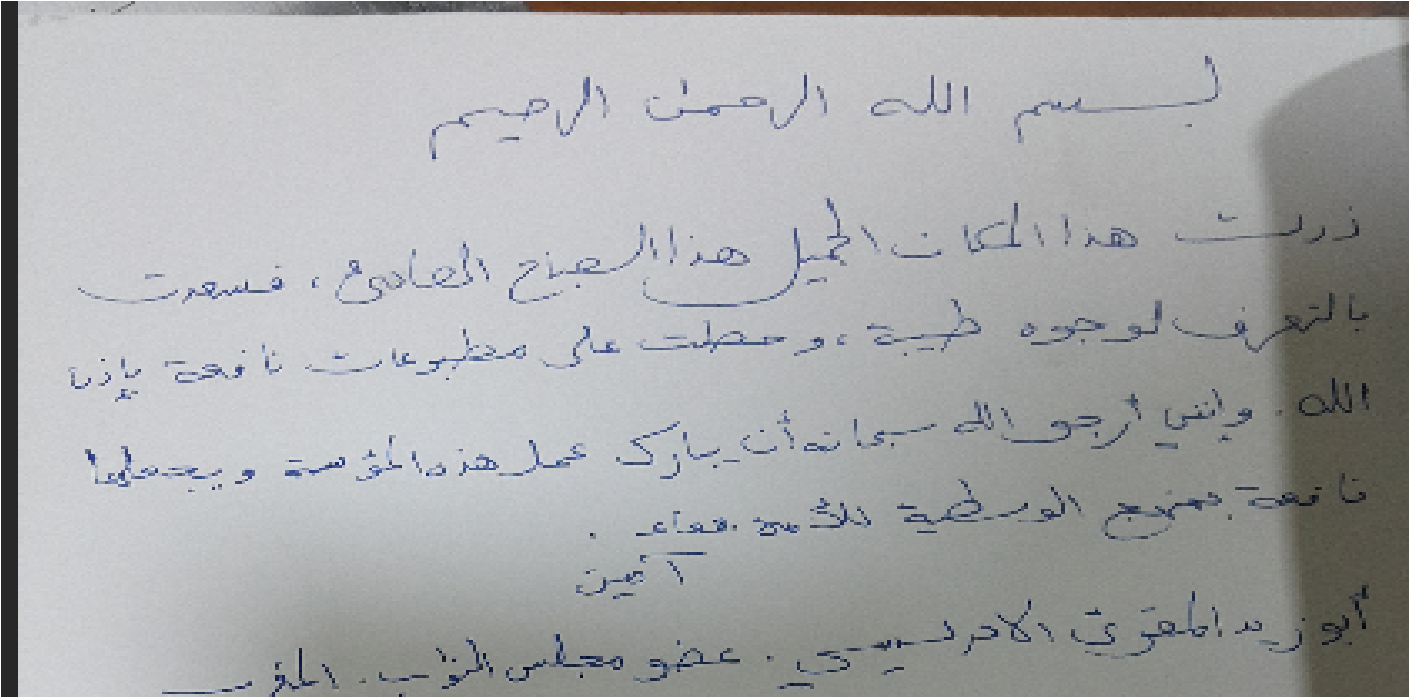 بسم الله الرحمن الرحيم
زرت هذا المكان الجميل هذا الصباح الهادئ، فسعدت
بالتعرف لوجوه طيبة، وحصلت على مطبوعات نافعة بإذن
الله. وإنني أرجو الله سبحانه أن يبارك عمل هذه المؤسسة ويجعلها
نافعة بمنهج الوسطية للأمة جمعاء.
آمين
أبو زيد المقرئ الإدريسي. عضو مجلس النواب. المغرب